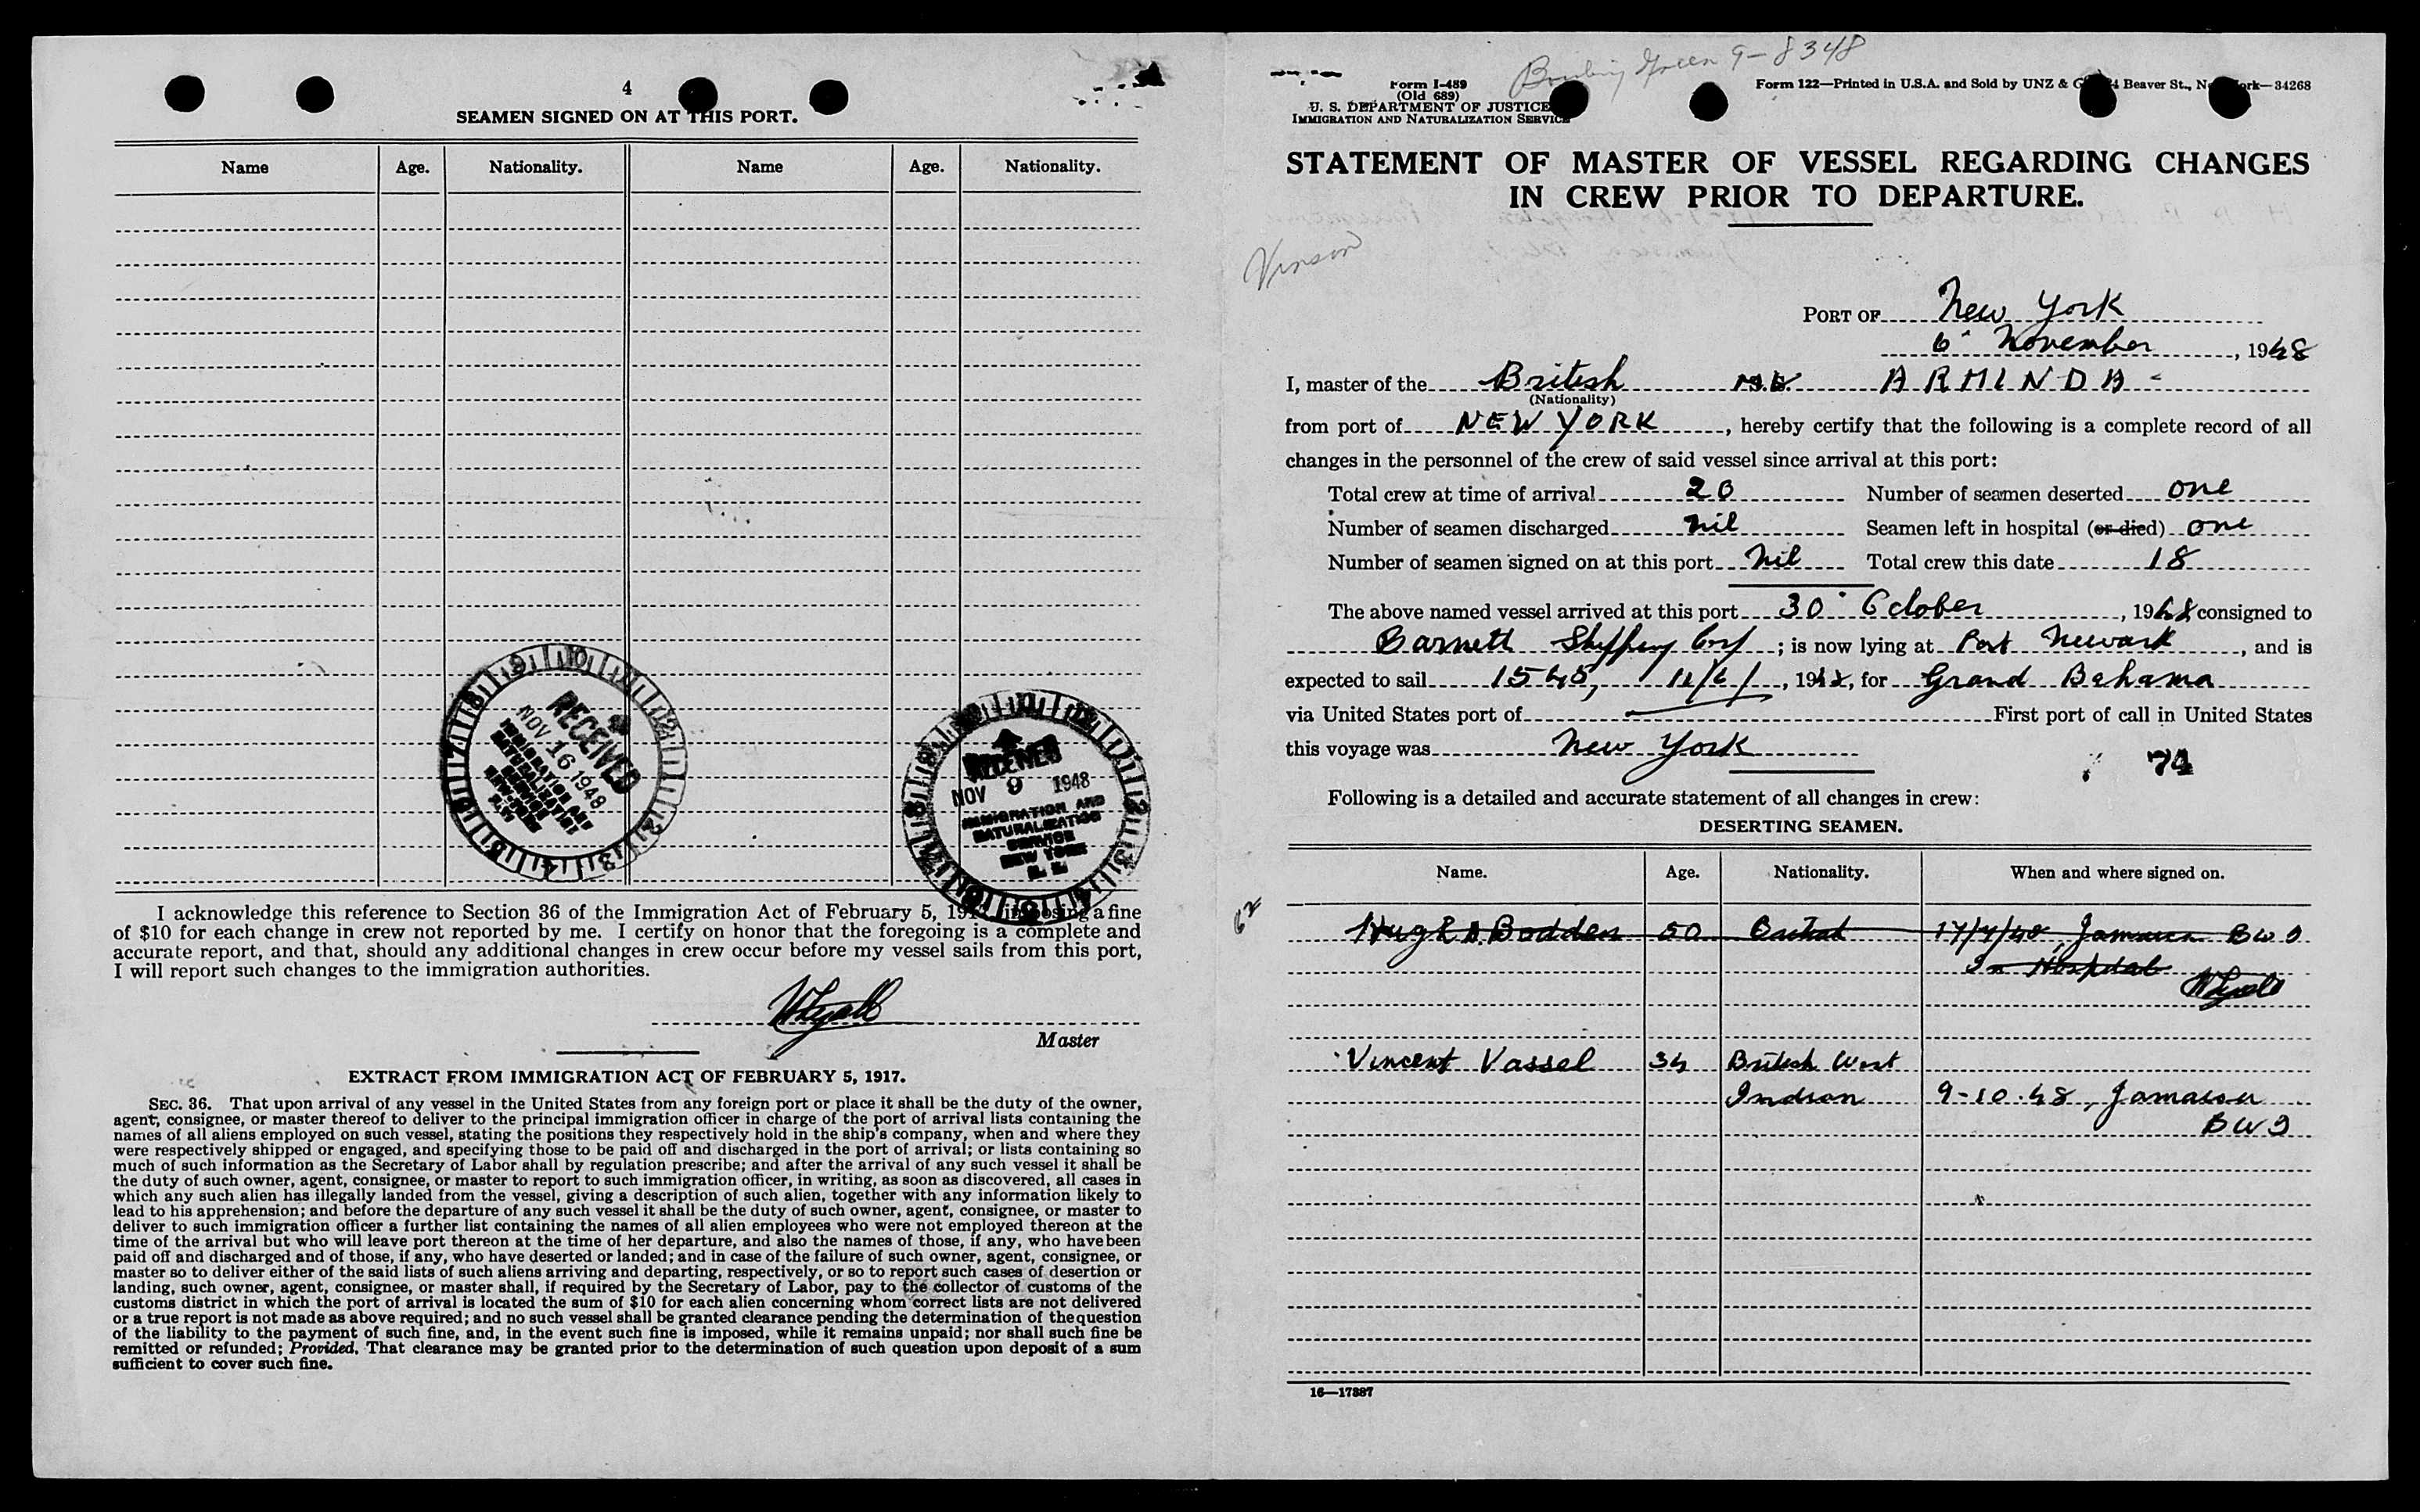 4
SEAMEN SIGNED ON AT THIS PORT.
Name Age. Nationality. Name Age. Nationality.
RECEIVED
NOV 16 1948
IMMIGRATION AND
NATURALIZATION
SERVICE
NEW YORK
N. Y.
RECEIVED
NOV 9 1948
IMMIGRATION AND
NATURALIZATION
SERVICE
NEW YORK
N. Y.
I acknowledge this reference to Section 36 of the Immigration Act of February 5, imposing a fine
of $10 for each change in crew not reported by me. I certify on honor that the foregoing is a complete and
accurate report, and that, should any additional changes in crew occur before my vessel sails from this port,
I will report such changes to the immigration authorities.
Master
EXTRACT FROM IMMIGRATION ACT OF FEBRUARY 5, 1917.
SEC. 36. That upon arrival of any vessel in the United States from any foreign port or place it shall be the duty of the owner,
agent, consignee, or master thereof to deliver to the principal immigration officer in charge of the port of arrival lists containing the
names of all aliens employed on such vessel, stating the positions they respectively hold in the ship's company, when and where they
were respectively shipped or engaged, and specifying those to be paid off and discharged in the port of arrival; or lists containing so
much of such information as the Secretary of Labor shall by regulation prescribe; and after the arrival of any such vessel it shall be
the duty of such owner, agent, consignee, or master to report to such immigration officer, in writing, as soon as discovered, all cases in
which any such alien has illegally landed from the vessel, giving a description of such alien, together with any information likely to
lead to his apprehension; and before the departure of any such vessel it shall be the duty of such owner, agent, consignee, or master to
deliver to such immigration officer a further list containing the names of all alien employees who were not employed thereon at the
time of the arrival but who will leave port thereon at the time of her departure, and also the names of those, if any, who have been
paid off and discharged and of those, if any, who have deserted or landed; and in case of the failure of such owner, agent, consignee, or
master so to deliver either of the said lists of such aliens arriving and departing, respectively, or so to report such cases of desertion or
landing, such owner, agent, consignee, or master shall, if required by the Secretary of Labor, pay to the collector of customs of the
customs district in which the port of arrival is located the sum of $10 for each alien concerning whom correct lists are not delivered
or a true report is not made as above required; and no such vessel shall be granted clearance pending the determination of the question
of the liability to the payment of such fine, and, in the event such fine is imposed, while it remains unpaid; nor shall such fine be
remitted or refunded; Provided, That clearance may be granted prior to the determination of such question upon deposit of a sum
sufficient to cover such fine.
Bowling Green 9-8348
Form I-489
(Old 689)
U. S. DEPARTMENT OF JUSTICE
IMMIGRATION AND NATURALIZATION SERVICE
Form 122—Printed in U.S.A. and Sold by UNZ & Beaver St., 34268
STATEMENT OF MASTER OF VESSEL REGARDING CHANGES
IN CREW PRIOR TO DEPARTURE.
Vinson
PORT OF New York
6 November, 1948
I, master of the British ARMINDA
(Nationality)
from port of NEW YORK, hereby certify that the following is a complete record of all
changes in the personnel of the crew of said vessel since arrival at this port:
Total crew at time of arrival 20 Number of seamen deserted one
Number of seamen discharged nil Seamen left in hospital (or died) one
Number of seamen signed on at this port nil Total crew this date 18
The above named vessel arrived at this port 30 October, 1948 consigned to
Barnett Shipping Corp; is now lying at Port Newark, and is
expected to sail 1545, 11/6/, 1948, for Grand Bahama
via United States port of First port of call in United States
this voyage was New York
74
Following is a detailed and accurate statement of all changes in crew:
DESERTING SEAMEN.
Name. Age. Nationality. When and where signed on.
62
Hugh A. Bodden 50 British 17/7/48, Jamaica BWI
In Hospital
Vincent Vassel 34 British West
Indian 9-10-48, Jamaica
BWI
16—17887